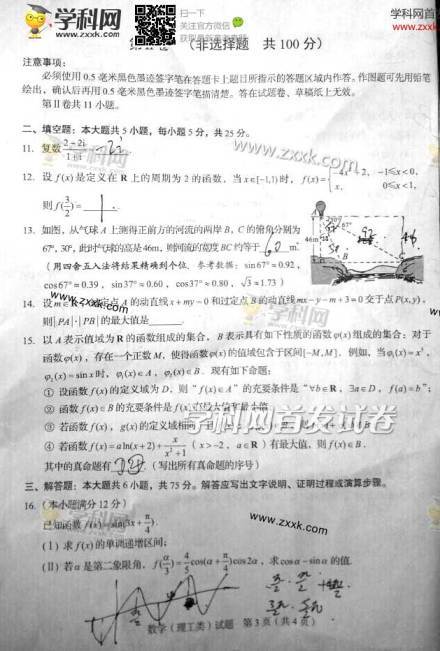 学科网 www.zxxk.com
扫一下
关注官方微信
学科网 www.zxxk.com
（非选择题 共 100 分）
注意事项：
必须使用 0.5 毫米黑色墨迹签字笔在答题卡上题目所指示的答题区域内作答。作图题可先用铅笔
绘出，确认后再用 0.5 毫米黑色墨迹签字笔描清楚。答在试题卷、草稿纸上无效。
第Ⅱ卷共 11 小题。
二、填空题：本大题共 5 小题，每小题 5 分，共 25 分。
11. 复数 (2-2i)/(1+i) -2i
www.zxxk.com
12. 设 f(x) 是定义在 R 上的周期为 2 的函数，当 x∈[-1,1) 时，f(x)= 2, -1≤x<0,
x, 0≤x<1,
则 f(3/2)= 1 .
13. 如图，从气球 A 上测得正前方的河流的两岸 B，C 的俯角分别为
67°，30°，此时气球的高是 46m，则河流的宽度 BC 约等于 60 m.
（用四舍五入法将结果精确到个位. 参考数据：sin67°≈0.92，
cos67°≈0.39，sin37°≈0.60，cos37°≈0.80，√3≈1.73）
46m
67°
30°
14. 设 m∈R，过定点 A 的动直线 x+my=0 和过定点 B 的动直线 mx-y-m+3=0 交于点 P(x,y)，
则 |PA|·|PB| 的最大值是
15. 以 A 表示值域为 R 的函数组成的集合，B 表示具有如下性质的函数 φ(x) 组成的集合：对于
函数 φ(x)，存在一个正数 M，使得函数 φ(x) 的值域包含于区间 [-M,M]. 例如，当 φ₁(x)=x³，
φ₂(x)=sinx 时，φ₁(x)∈A，φ₂(x)∈B. 现有如下命题：
① 设函数 f(x) 的定义域为 D，则 “f(x)∈A” 的充要条件是 “∀b∈R，∃a∈D，f(a)=b”；
② 函数 f(x)∈B 的充要条件是 f(x) 有最大值和最小值
③ 若函数 f(x)，g(x) 的定义域相同
学科网首发试卷
④ 若函数 f(x)=aln(x+2)+x/(x²+1)（x>-2，a∈R）有最大值，则 f(x)∈B.
其中的真命题有 （写出所有真命题的序号）
三、解答题：本大题共 6 小题，共 75 分。解答应写出文字说明、证明过程或演算步骤。
16. （本小题满分 12 分）
已知函数 f(x)=sin(3x+π/4).
www.zxxk.com
（Ⅰ）求 f(x) 的单调递增区间；
（Ⅱ）若 α 是第二象限角，f(α/3)=4/5 cos(α+π/4)cos2α，求 cosα-sinα 的值.
数学（理工类）试题 第 3 页（共 4 页）